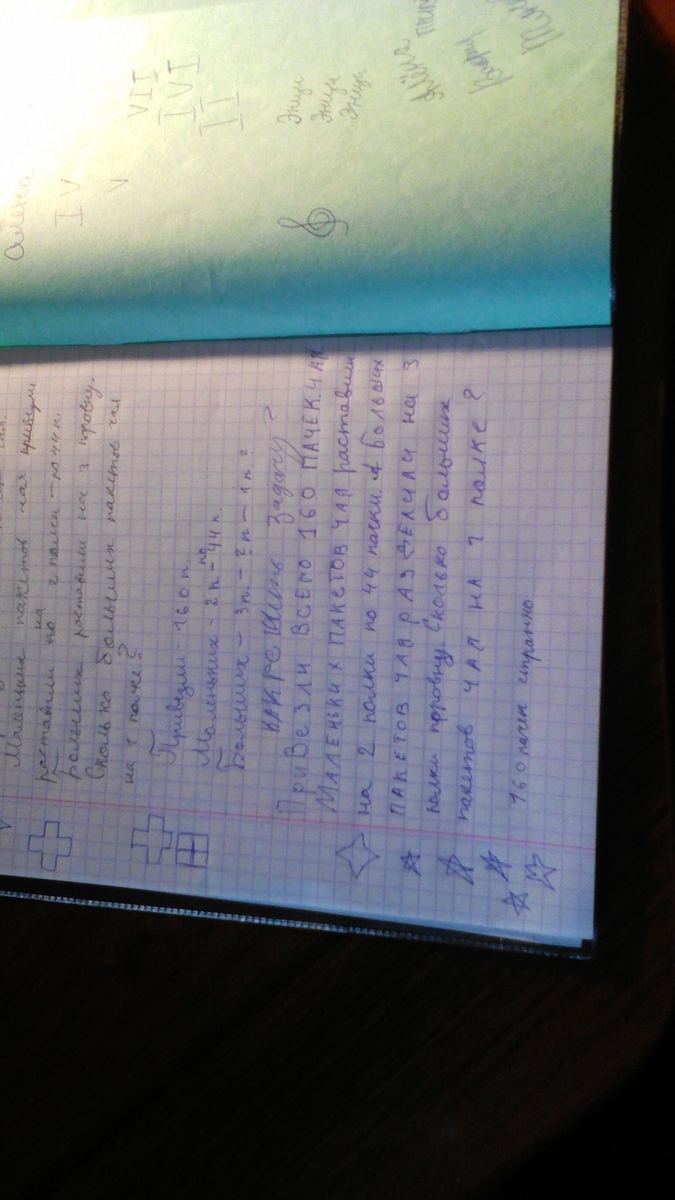 Маленьких пакетов чая привезли
расставили на по 2 полки - по 44 п.
Больших расставили на 3 поровну.
Сколько больших пакетов чая
на 1 полке?
Привезли - 160 п
Маленьких - 2 п - по 44 п.
Больших - 3 п. - ? п - 1 п?
КАК РЕШить задачу?
ПриВезли ВСЕГО 160 ПАЧЕК ЧАЯ
МАЛЕНЬКИХ ПАКЕТОВ ЧАЯ расставили
на 2 полки по 44 пачки. А больших
ПАКЕТОВ ЧАЯ РАЗДЕЛИЛИ на 3
полки поровну. Сколько больших
пакетов ЧАЯ НА 1 полке?
160 пачек странно
IV
V
VII
IVI
II
Энци
Энци
Энци
Алёна